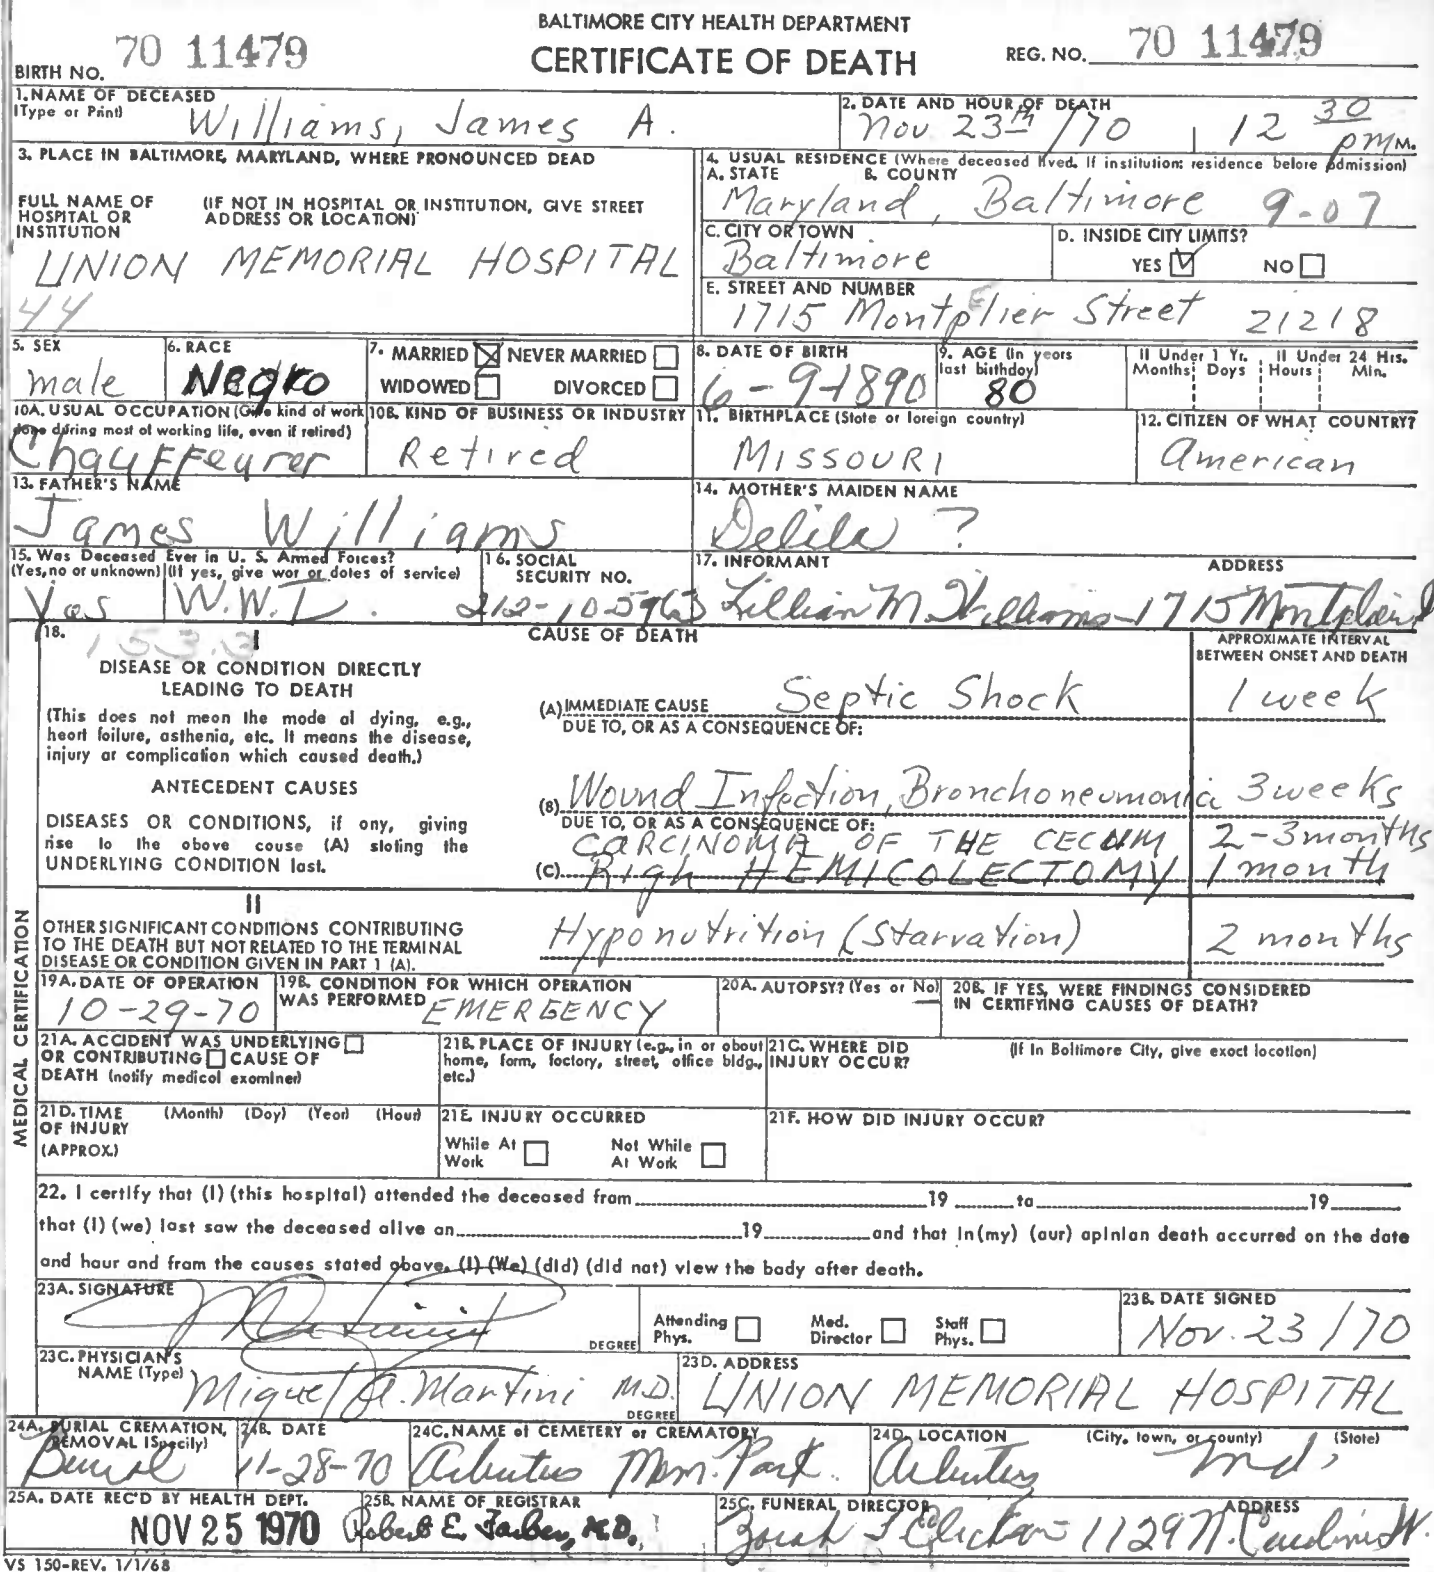 BALTIMORE CITY HEALTH DEPARTMENT
CERTIFICATE OF DEATH
BIRTH NO. 70 11479
REG. NO. 70 11479
1. NAME OF DECEASED
(Type or Print) Williams, James A.
2. DATE AND HOUR OF DEATH
Nov. 23th /70 12 30 pm M.
3. PLACE IN BALTIMORE, MARYLAND, WHERE PRONOUNCED DEAD
FULL NAME OF HOSPITAL OR INSTITUTION
(IF NOT IN HOSPITAL OR INSTITUTION, GIVE STREET ADDRESS OR LOCATION)
UNION MEMORIAL HOSPITAL
44
4. USUAL RESIDENCE (Where deceased lived. If institution: residence before admission)
A. STATE B. COUNTY
Maryland, Baltimore 9-07
C. CITY OR TOWN
Baltimore
D. INSIDE CITY LIMITS?
YES NO
E. STREET AND NUMBER
1715 Montplier Street 21218
5. SEX
male
6. RACE
Negro
7. MARRIED NEVER MARRIED
WIDOWED DIVORCED
8. DATE OF BIRTH
6-9-1890
9. AGE (In years last birthday)
80
If Under 1 Yr. Months Days
If Under 24 Hrs. Hours Min.
10A. USUAL OCCUPATION (Give kind of work done during most of working life, even if retired)
Chauffeurer
10B. KIND OF BUSINESS OR INDUSTRY
Retired
11. BIRTHPLACE (State or foreign country)
MISSOURI
12. CITIZEN OF WHAT COUNTRY?
American
13. FATHER'S NAME
James Williams
14. MOTHER'S MAIDEN NAME
Delila ?
15. Was Deceased Ever in U. S. Armed Forces?
(Yes, no or unknown) (If yes, give war or dates of service)
Yes W.W.I.
16. SOCIAL SECURITY NO.
212-10-5963
17. INFORMANT ADDRESS
Lillian M. Williams - 1715
18. 153.3
CAUSE OF DEATH
APPROXIMATE INTERVAL BETWEEN ONSET AND DEATH
I
DISEASE OR CONDITION DIRECTLY LEADING TO DEATH
(This does not mean the mode of dying, e.g., heart failure, asthenia, etc. It means the disease, injury or complication which caused death.)
(A) IMMEDIATE CAUSE Septic Shock 1 week
DUE TO, OR AS A CONSEQUENCE OF:
ANTECEDENT CAUSES
DISEASES OR CONDITIONS, if any, giving rise to the above cause (A) stating the UNDERLYING CONDITION last.
(B) Wound Infection, Bronchoneumonia 3 weeks
DUE TO, OR AS A CONSEQUENCE OF:
CARCINOMA OF THE CECUM 2-3 months
(C) Righ HEMICOLECTOMY 1 month
II
OTHER SIGNIFICANT CONDITIONS CONTRIBUTING TO THE DEATH BUT NOT RELATED TO THE TERMINAL DISEASE OR CONDITION GIVEN IN PART 1 (A).
Hyponutrition (Starvation) 2 months
MEDICAL CERTIFICATION
19A. DATE OF OPERATION
10-29-70
19B. CONDITION FOR WHICH OPERATION WAS PERFORMED
EMERGENCY
20A. AUTOPSY? (Yes or No)
20B. IF YES, WERE FINDINGS CONSIDERED IN CERTIFYING CAUSES OF DEATH?
21A. ACCIDENT WAS UNDERLYING OR CONTRIBUTING CAUSE OF DEATH (notify medical examiner)
21B. PLACE OF INJURY (e.g., in or about home, farm, factory, street, office bldg., etc.)
21C. WHERE DID INJURY OCCUR?
(If in Baltimore City, give exact location)
21D. TIME OF INJURY (APPROX.) (Month) (Day) (Year) (Hour)
21E. INJURY OCCURRED
While At Work Not While At Work
21F. HOW DID INJURY OCCUR?
22. I certify that (I) (this hospital) attended the deceased from 19 to 19
that (I) (we) last saw the deceased alive on 19 and that in (my) (our) opinion death occurred on the date
and hour and from the causes stated above. (I) (We) (did) (did not) view the body after death.
23A. SIGNATURE
DEGREE
Attending Phys. Med. Director Staff Phys.
23B. DATE SIGNED
Nov. 23 /70
23C. PHYSICIAN'S NAME (Type)
Miguel A. Martini M.D.
DEGREE
23D. ADDRESS
UNION MEMORIAL HOSPITAL
24A. BURIAL CREMATION, REMOVAL (Specify)
Burial
24B. DATE
11-28-70
24C. NAME of CEMETERY or CREMATORY
Arbutus Mem. Park
24D. LOCATION (City, town, or county) (State)
Arbutus Md.
25A. DATE REC'D BY HEALTH DEPT.
NOV 25 1970
25B. NAME OF REGISTRAR
Robert E. Farber, M.D.
25C. FUNERAL DIRECTOR ADDRESS
1129 N. Caroline St.
VS 150-REV. 1/1/68